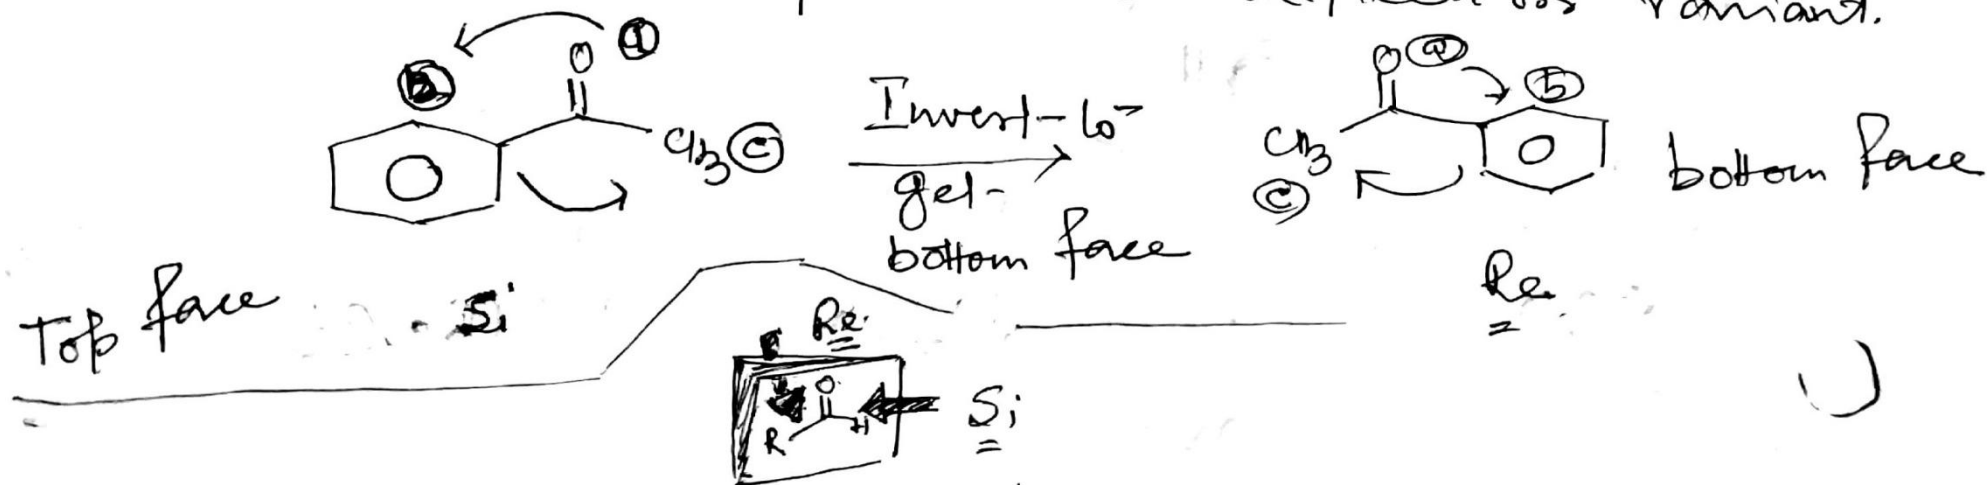 variant.
O ⓐ
ⓑ
CH3 ⓒ
Invert to
get
bottom face
O ⓐ ⓑ
CH3
ⓒ
bottom face
Top face Si
Re
Re
O
R H
Si